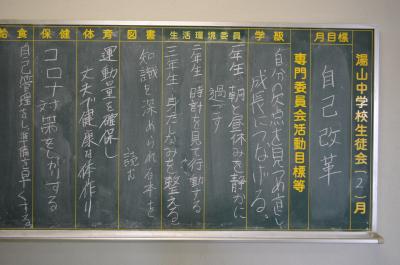 湯山中学校生徒会（2）月
専門委員会活動目標等
月目標
自己改革
学級
自分の欠点を見つめ直し
成長につなげる。
生活環境委員
一年生 朝と昼休みを静かに
過ごす
二年生 時計を見て行動する
三年生 身だしなみを整える
図書
知識を深められる本を
読む
体育
運動量を確保し
丈夫で健康な体作り
保健
コロナ対策をしっかりする
給食
自己管理をし準備を早くする